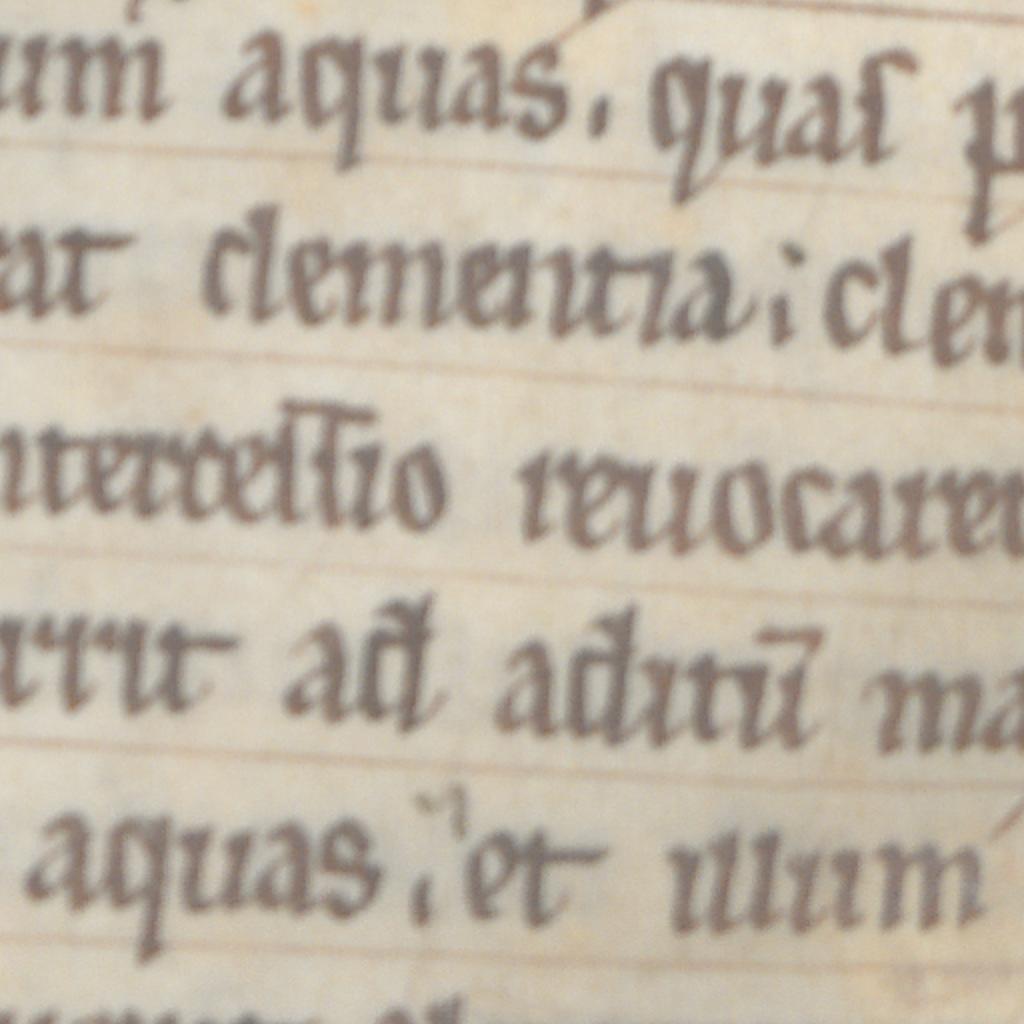 um aquas. quaſ p
at clementia; clem
nterceſſio reuocaret
urrit ad aditū ma
aquas; et illum